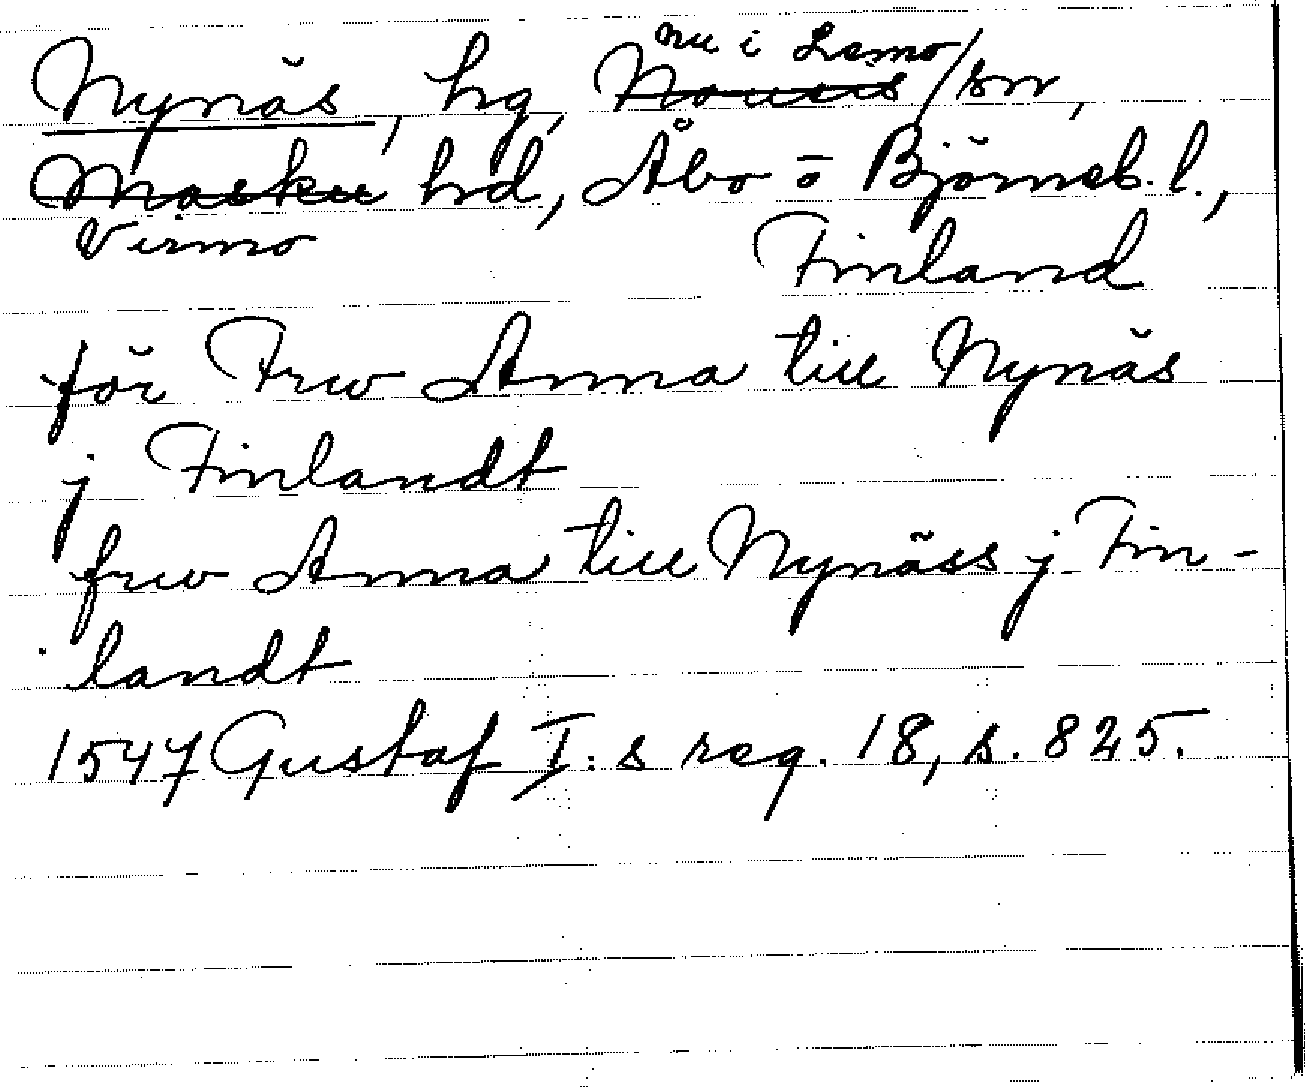 nu i Lemo
Nynäs, hg, Nousis/sn,
Masku hd, Åbo o Björneb. l.,
Virmo
Finland
för Frw Anna till Nynäs
j Finlandt
frw Anna till Nynäss j Fin-
landt
1547 Gustaf I:s reg. 18, s. 825.